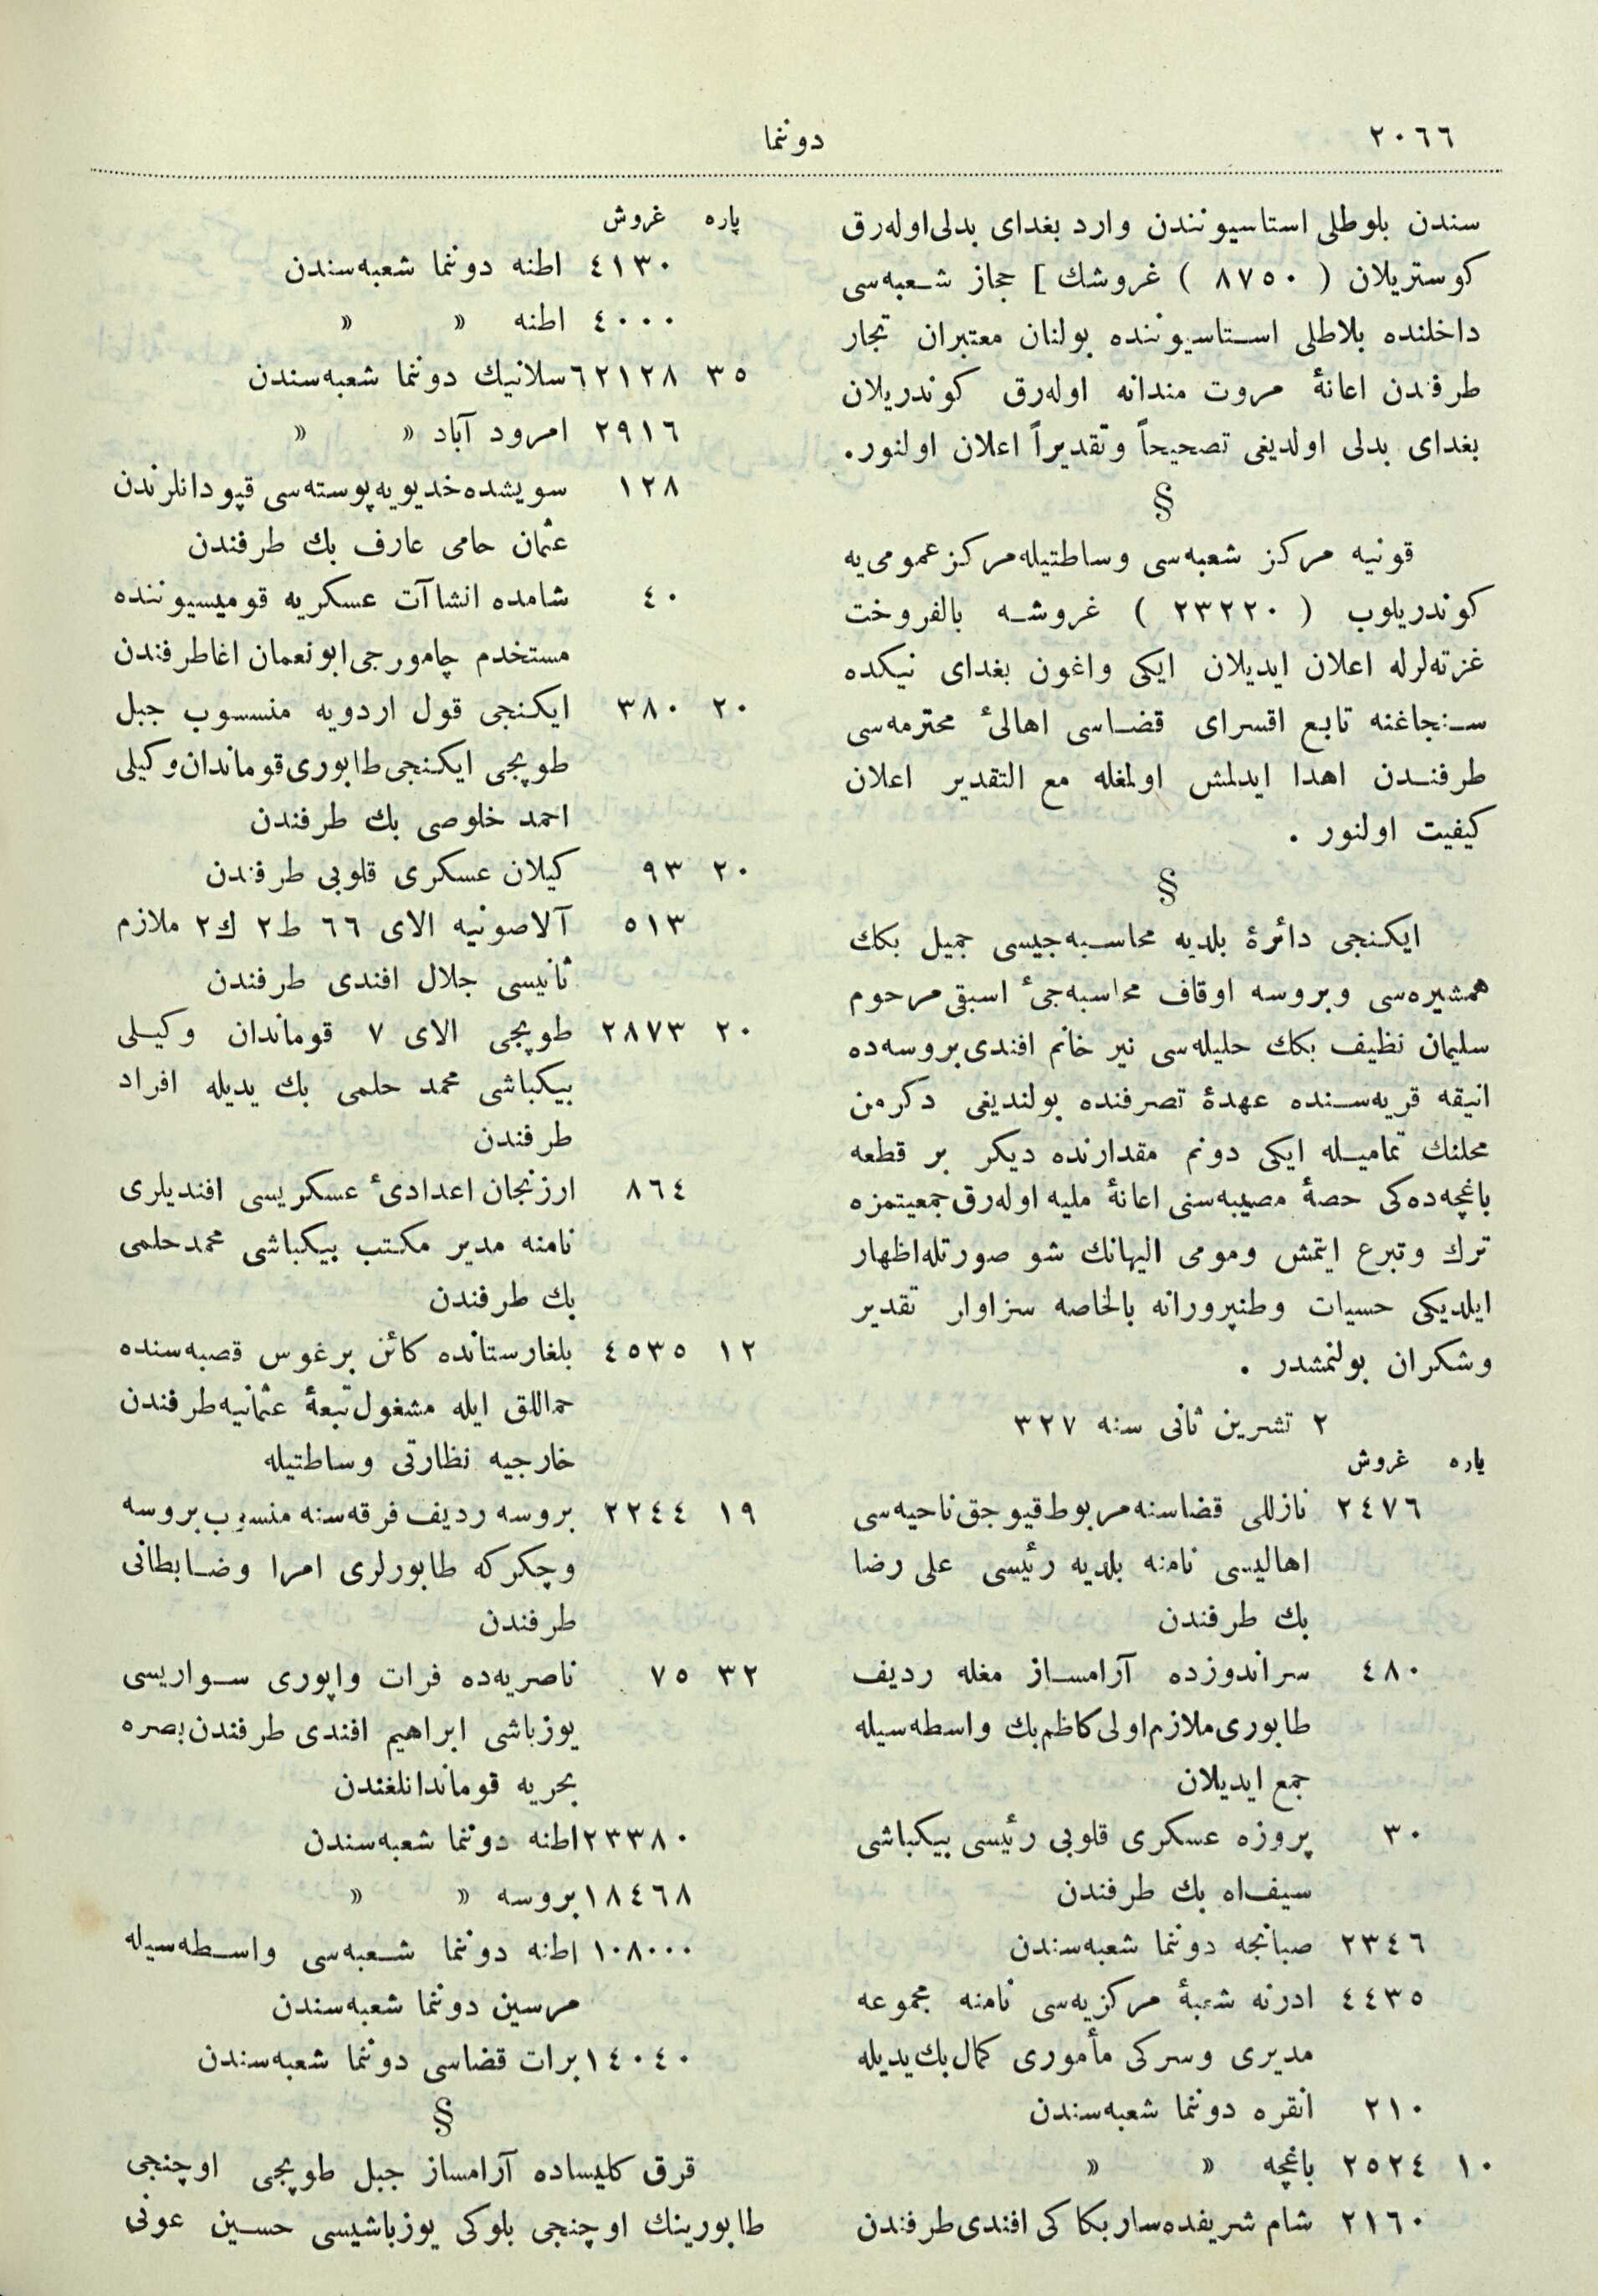 ٢٠٦٦
دوننما
سندن بلوطلى استاسيونندن وارد بغداى بدلى اوله‌رق
كوستريلان ( ٨٧٥٠ ) غروشك ] حجاز شعبه‌سى
داخلنده بلاطلى استاسيوننده بولنان معتبران تجار
طرفندن اعانهٔ مروت مندانه اوله‌رق كوندريلان
بغداى بدلى اولديغى تصحيحاً وتقديراً اعلان اولنور.
§
قونيه مركز شعبه‌سى وساطتيله مركز عمومى‌يه
كوندريلوب ( ٢٣٢٢٠ ) غروشه بالفروخت
غزته‌لرله اعلان ايديلان ايكى واغون بغداى نيكده
سنجاغنه تابع اقسراى قضاسى اهالئ محترمه‌سى
طرفندن اهدا ايدلمش اولمغله مع التقدير اعلان
كيفيت اولنور .
§
ايكنجى دائرهٔ بلديه محاسبه‌جيسى جميل بكك
همشيره‌سى وبروسه اوقاف محاسبه‌جئ اسبقى مرحوم
سليمان نظيف بكك حليله‌سى نير خانم افندى بروسه‌ده
انيقه قريه‌سنده عهدهٔ تصرفنده بولنديغى دكرمن
محلنك تماميله ايكى دونم مقدارنده ديكر بر قطعه
باغچه‌ده‌كى حصهٔ مصيبه‌سنى اعانهٔ مليه اوله‌رق جمعيتمزه
ترك وتبرع ايتمش ومومى اليهانك شو صورتله اظهار
ايلديكى حسيات وطنپرورانه بالخاصه سزاوار تقدير
وشكران بولنمشدر .
٢ تشرين ثانى سنه ٣٢٧
پاره غروش
٢٤٧٦ نازللى قضاسنه مربوط قيوجق ناحيه‌سى
اهاليسى نامنه بلديه رئيسى على رضا
بك طرفندن
٤٨٠ سراندوزده آرامساز مغله رديف
طابورى ملازم اولى كاظم بك واسطه‌سيله
جمع ايديلان
٣٠ پروزه عسكرى قلوبى رئيسى بيكباشى
سيف‌اه بك طرفندن
٢٣٤٦ صبانجه دوننما شعبه‌سندن
٤٤٣٥ ادرنه شعبهٔ مركزيه‌سى نامنه مجموعه
مديرى وسركى مأمورى كمال بك يديله
٢١٠ انقره دوننما شعبه‌سندن
١٠ ٢٥٢٤ باغچه » »
٢١٦٠ شام شريفده ساربكاكى افندى طرفندن
پاره غروش
٤١٣٠ اطنه دوننما شعبه‌سندن
٤٠٠٠ اطنه » »
٣٥ ٦٢١٢٨ سلانيك دوننما شعبه‌سندن
٢٩١٦ امرود آباد » »
١٢٨ سويشده خديويه پوسته‌سى قپودانلرندن
عثمان حامى عارف بك طرفندن
٤٠ شامده انشاآت عسكريه قوميسيوننده
مستخدم چامورجى ابونعمان اغا طرفندن
٢٠ ٣٨٠ ايكنجى قول اردويه منسوب جبل
طوپجى ايكنجى طابورى قوماندان وكيلى
احمد خلوصى بك طرفندن
٢٠ ٩٣ كيلان عسكرى قلوبى طرفندن
٥١٣ آلاصونيه الاى ٦٦ ط٢ ك٢ ملازم
ثانيسى جلال افندى طرفندن
٢٠ ٢٨٧٣ طوپجى الاى ٧ قوماندان وكيلى
بيكباشى محمد حلمى بك يديله افراد
طرفندن
٨٦٤ ارزنجان اعدادئ عسكريسى افنديلرى
نامنه مدير مكتب بيكباشى محمد حلمى
بك طرفندن
١٢ ٤٥٣٥ بلغارستانده كائن برغوس قصبه‌سنده
حماللق ايله مشغول تبعهٔ عثمانيه طرفندن
خارجيه نظارتى وساطتيله
١٩ ٢٢٤٤ بروسه رديف فرقه‌سنه منسوب بروسه
وچكركه طابورلرى امرا وضابطانى
طرفندن
٣٢ ٧٥ ناصريه‌ده فرات واپورى سواريسى
يوزباشى ابراهيم افندى طرفندن بصره
بحريه قوماندانلغندن
٢٣٣٨٠ اطنه دوننما شعبه‌سندن
١٨٤٦٨ بروسه » »
١٠٨٠٠٠ اطنه دوننما شعبه‌سى واسطه‌سيله
مرسين دوننما شعبه‌سندن
١٤٠٤٠ برات قضاسى دوننما شعبه‌سندن
§
قرق كليساده آرامساز جبل طوپجى اوچنجى
طابورينك اوچنجى بلوكى يوزباشيسى حسين عونى